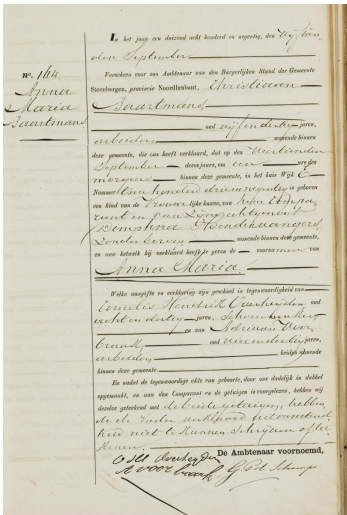 N°. 164.
Anna
Maria
Baartmans
In het jaar een duizend acht honderd en negentig, den vijftien
den September
Verscheen voor ons Ambtenaar van den Burgerlijken Stand der Gemeente
Steenbergen, provincie Noordbrabant, Christiaan
Baartmans
oud vijfendertig jaren,
arbeider wonende binnen
deze gemeente, die ons heeft verklaard, dat op den veertienden
September dezes jaars, om een ure des
morgens binnen deze gemeente, in het huis Wijk E
Nummer twee honderd drieennegentig is geboren
een kind van de Vrouwelijke kunne, van hem Compa
rant en van zijne echtgenoot
Dimphna
zonder beroep wonende binnen deze gemeente,
en aan hetwelk hij verklaard heeft te geven de voornamen van
Anna Maria
Welke aangifte en verklaring zijn geschied in tegenwoordigheid van
Cornelis Hendrik oud
acht en dertig jaren,
en van Adriaan Voor
braak oud jaren,
arbeider beiden wonende
binnen deze gemeente.
En nadat de tegenwoordige akte van geboorte, daar van dadelijk in dubbel
opgemaakt, en aan den Comparant en de getuigen is voorgelezen, hebben wij
dezelve geteekend met de beide getuigen, hebben
de de Vader verklaard
niet te kunnen schrijven of tee
kenen.
De Ambtenaar voornoemd,
A voorbraak